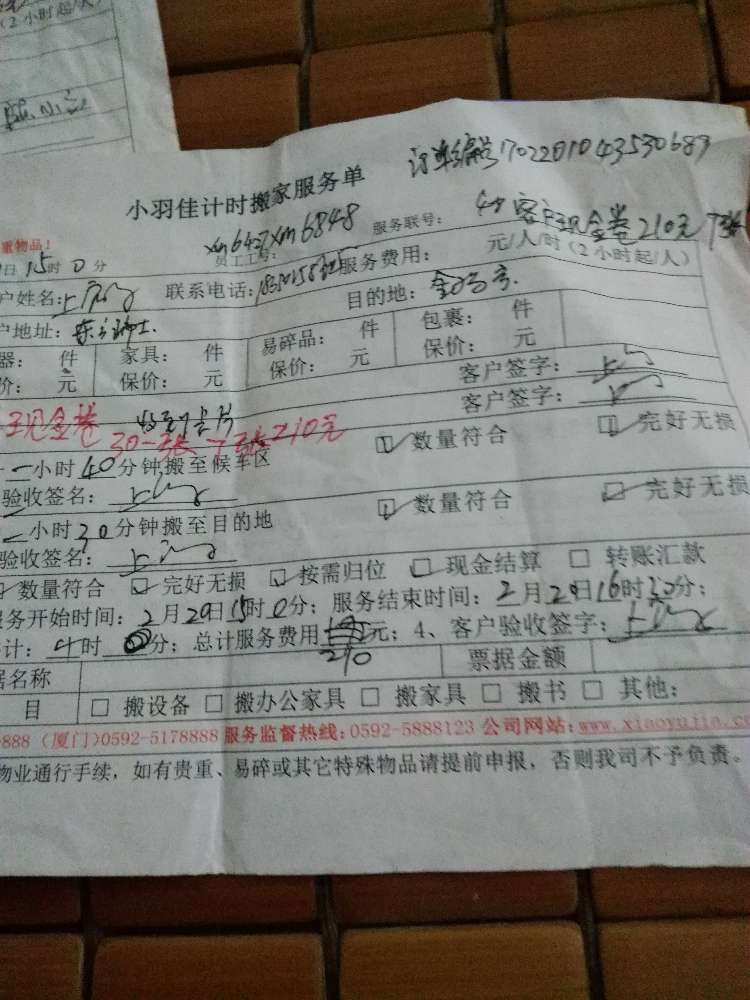 (2小时起/人)
订单编号702201043530689
小羽佳计时搬家服务单
重物品!
xm6427xm6848
员工工号:
服务联号:
客户现金卷210元7张
日15时0分
服务费用: 元/人/时(2小时起/人)
户姓名:
联系电话:
目的地:
户地址:
器: 件 家具: 件 易碎品: 件 包裹: 件
价: 元 保价: 元 保价: 元 保价: 元
客户签字:
客户签字:
现金卷 收到7卡片
30一张 7张210元
一小时40分钟搬至候车区 数量符合 完好无损
验收签名:
小时30分钟搬至目的地 数量符合 完好无损
验收签名:
数量符合 完好无损 按需归位 现金结算 转账汇款
服务开始时间: 2月20日15时0分; 服务结束时间: 2月20日16时30分;
计: 时 分; 总计服务费用 元; 4、客户验收签字:
210
据名称 票据金额
目 搬设备 搬办公家具 搬家具 搬书 其他:
888 (厦门)0592-5178888 服务监督热线:0592-5888123 公司网站:www.xiaoyujia.c
物业通行手续,如有贵重、易碎或其它特殊物品请提前申报,否则我司不予负责。